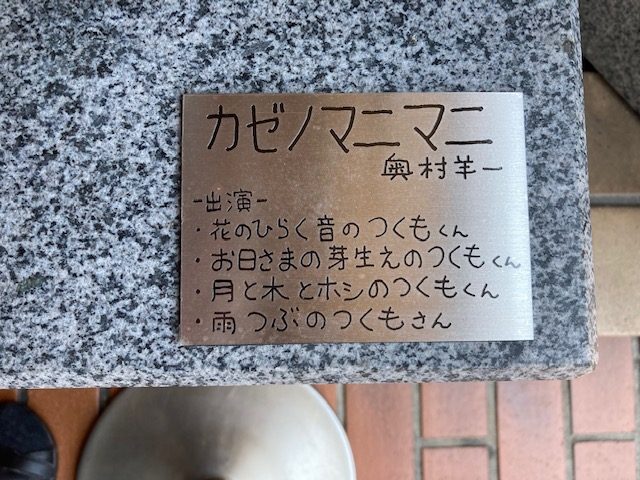 カゼノマニマニ
奥村羊一
-出演-
・花のひらく音のつくもくん
・お日さまの芽生えのつくもくん
・月と木とホシのつくもくん
・雨つぶのつくもさん